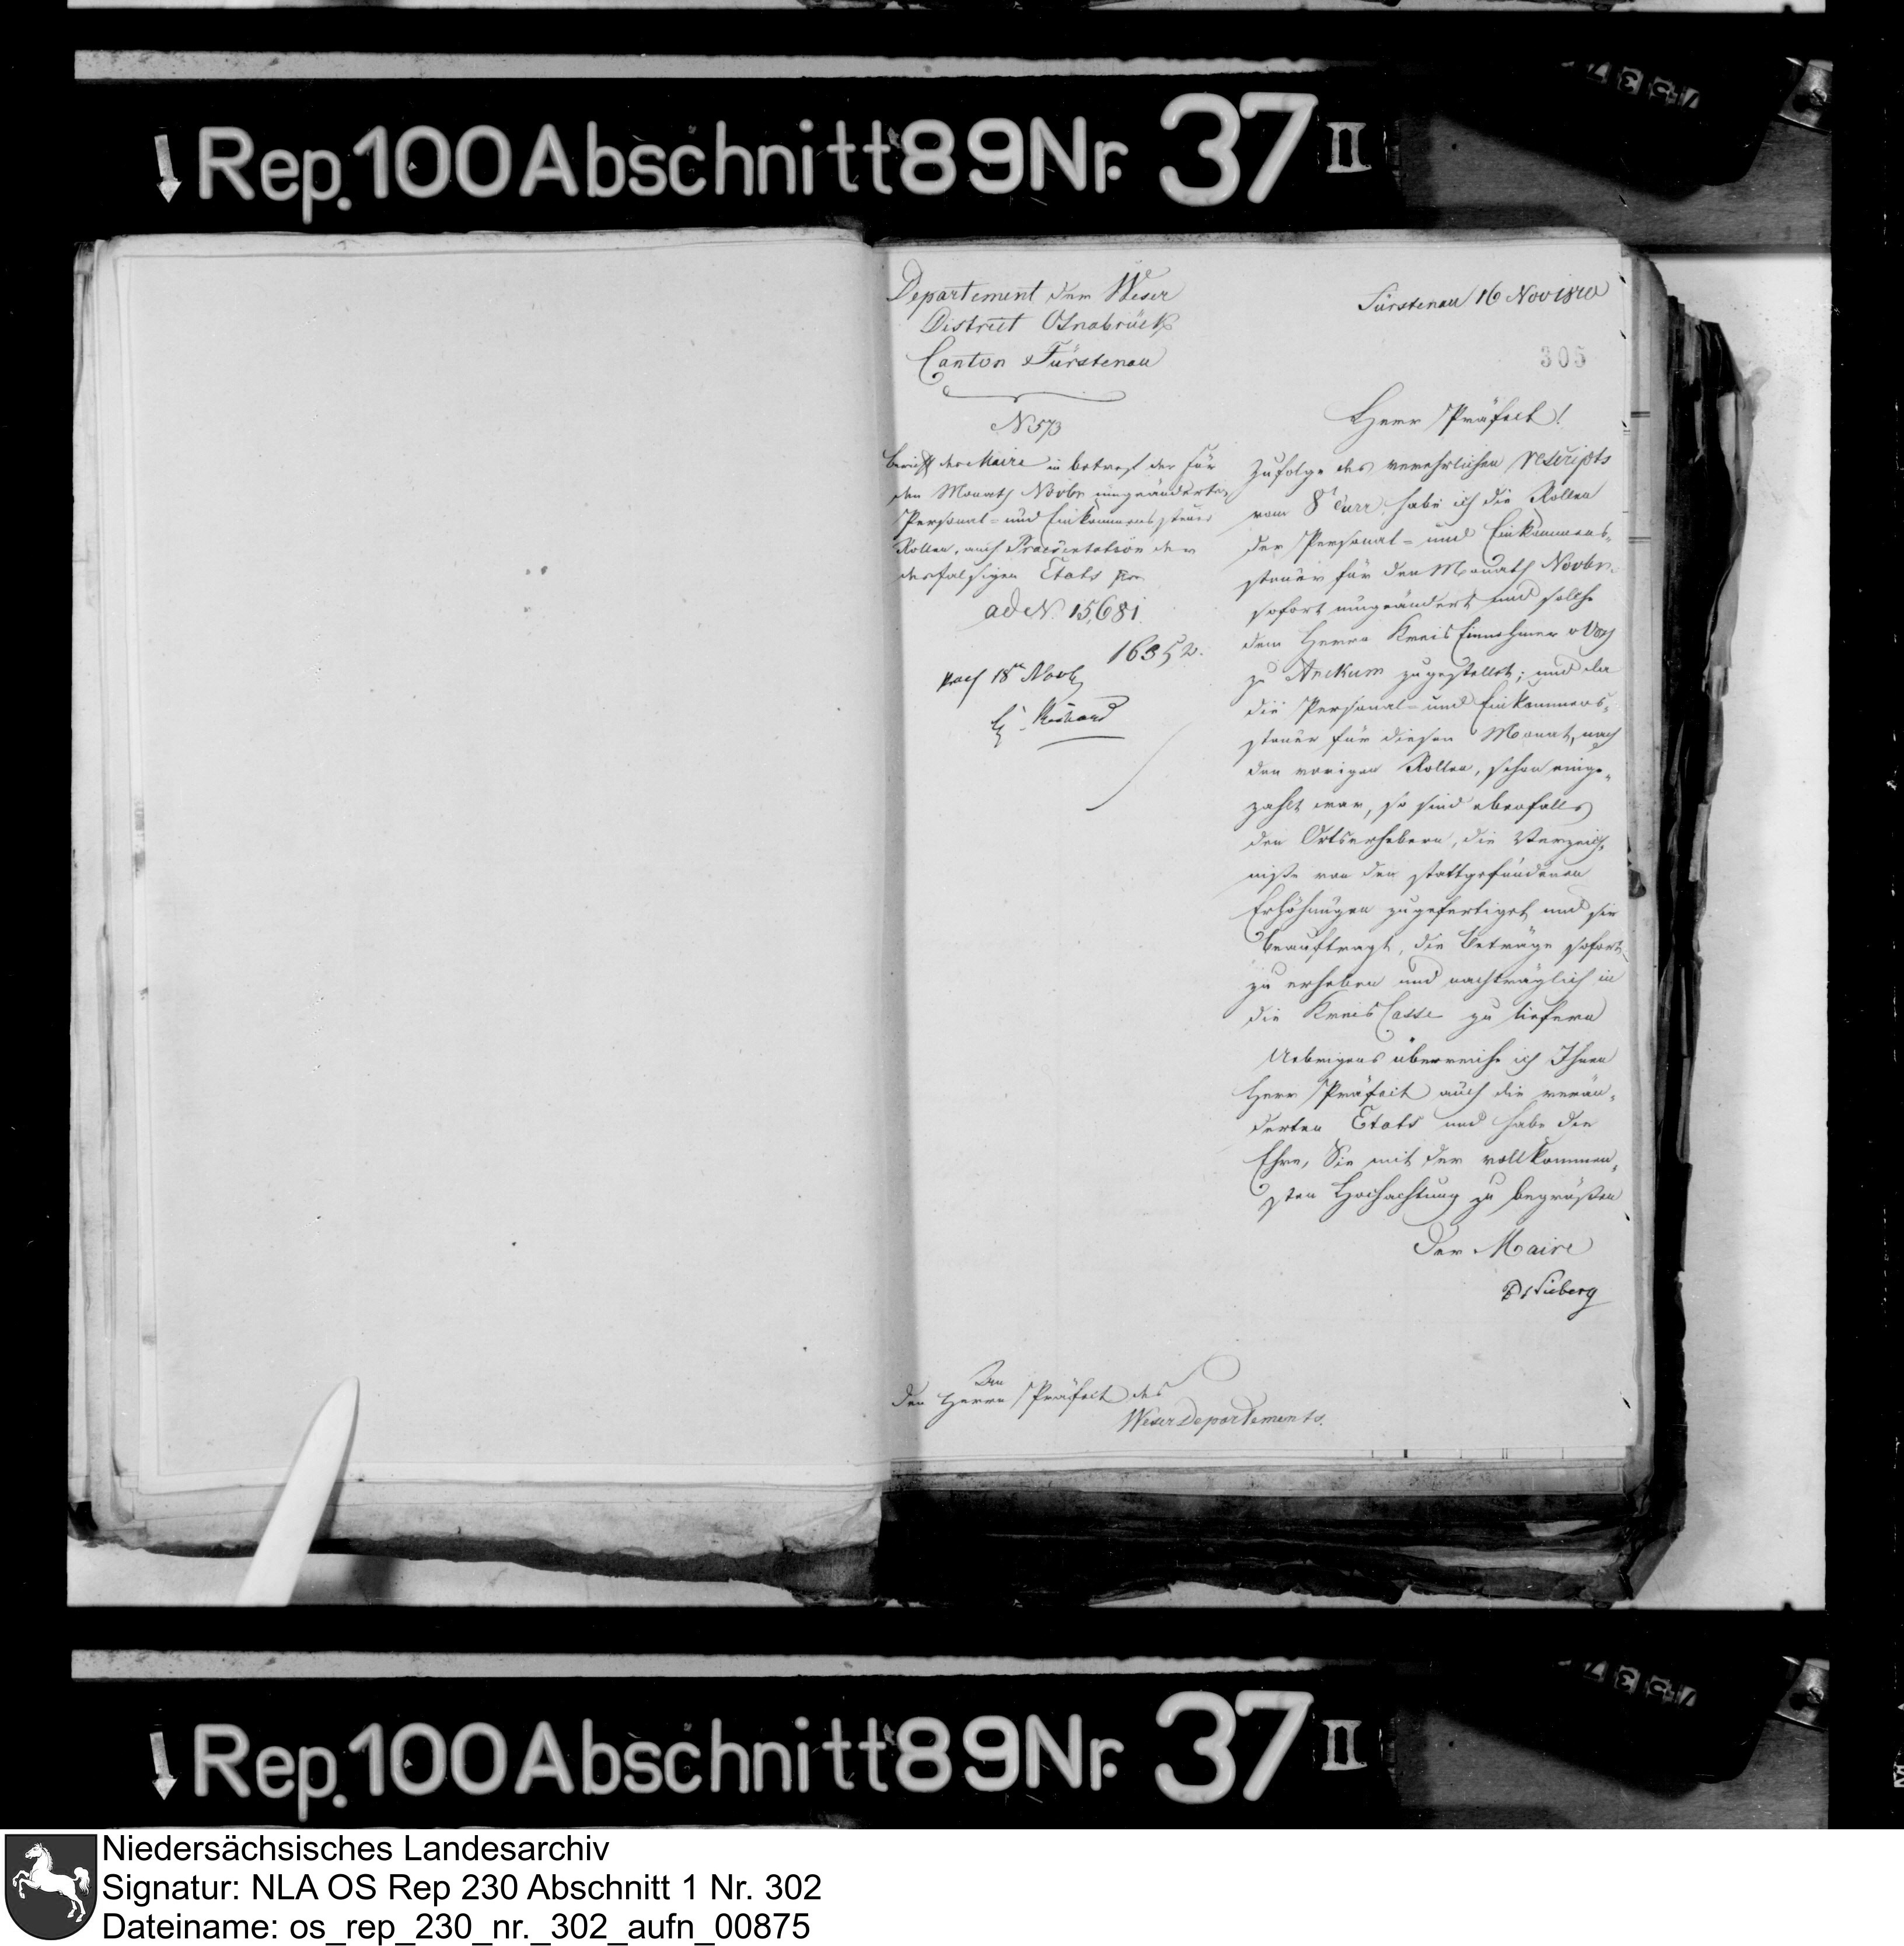 Rep. 100 Abschnitt 89 Nr. 37 II
Departement der Weser
District Osnabrück
Canton Fürstenau
N 573
Bericht des Maire in betreff der für
den Monath Novbr umgeänderten
Personal- und Einkommensteuer
Rollen, auch Praesentation der
desfalsigen Etats pro
ad N. 15,681.
16352.
18ten Novb
Fürstenau 16 Nov 1810
305
Herr Präfect!
Zufolge des verehrlichen Rescripts
vom 8t curr. habe ich die Rollen
der Personal- und Einkommens-
steuer für den Monath Novbr.
sofort umgeändert und solche
dem Herrn Kreis Einnehmer
zu Anckum zugestellet; und da
die Personal- und Einkommens-
steuer für diesen Monat, nach
den vorigen Rollen, schon einge-
zahlt war, so sind ebenfalls
den Ortserhebern, die Verzeich-
niße von den stattgefundenen
Erhöhungen zugefertiget und sie
beauftragt, die Beträge sofort
zu erheben und nachträglich in
die Kreis Casse zu liefern
Uebrigens überreiche ich Ihnen
Herr Präfect auch die verän-
derten Etats und habe die
Ehre, Sie mit der vollkommen-
sten Hochachtung zu begrüßen
Der Maire
Sieberg
An
den Herrn Präfect des
Weser Departements.
Rep. 100 Abschnitt 89 Nr. 37 II
Niedersächsisches Landesarchiv
Signatur: NLA OS Rep 230 Abschnitt 1 Nr. 302
Dateiname: os_rep_230_nr._302_aufn_00875